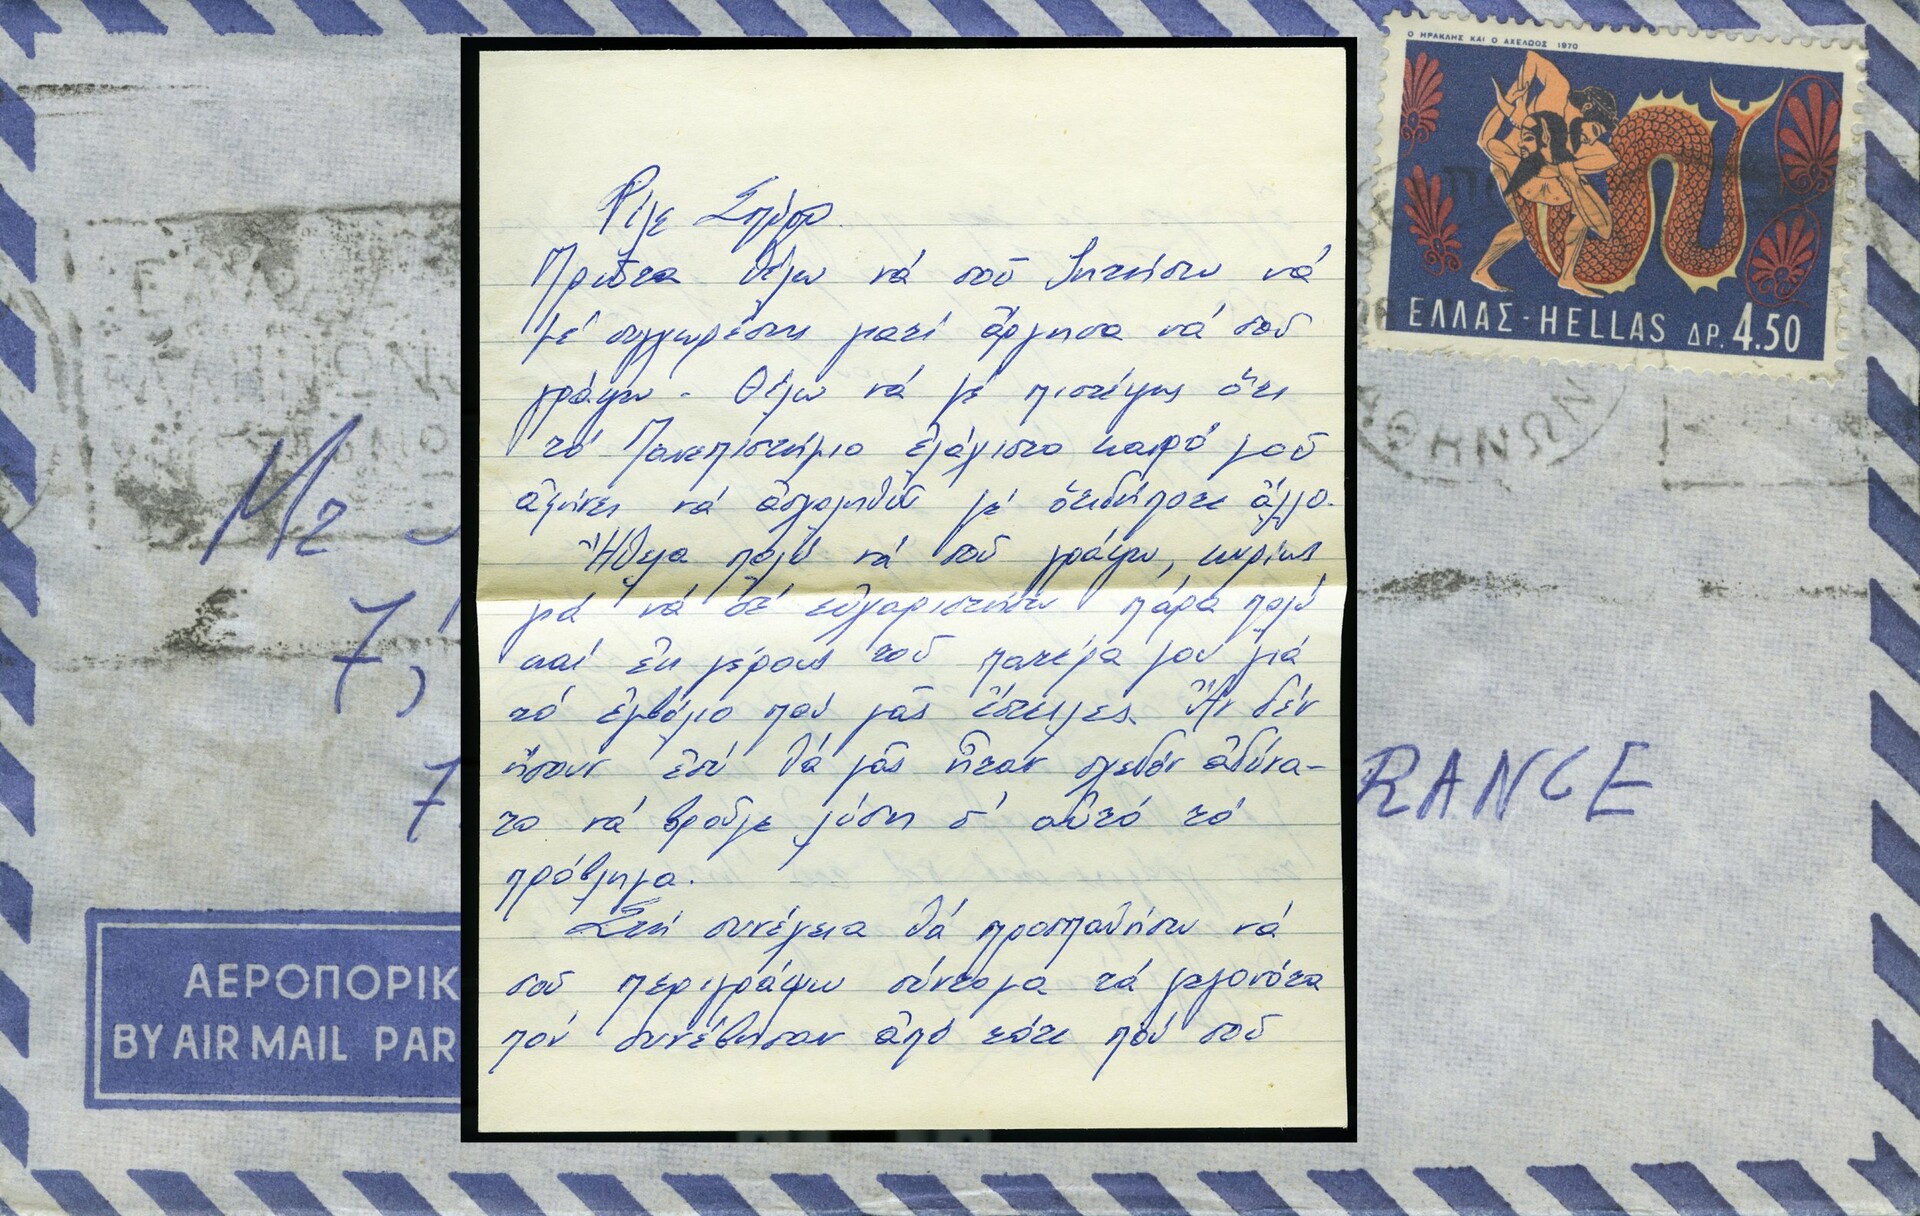 Ο ΗΡΑΚΛΗΣ ΚΑΙ Ο ΑΧΕΛΩΟΣ 1970
ΕΛΛΑΣ-HELLAS ΔΡ. 4.50
ΑΘΗΝΩΝ
Φίλε Σπύρο
Πρῶτα θέλω νά σοῦ ζητήσω νά
μέ συγχωρέσης γιατί ἄργησα νά σοῦ
γράψω - Θέλω νά μέ πιστέψης ὅτι
τό Πανεπιστήμιο ἐλάχιστο καιρό μοῦ
ἀφήνει νά ἀσχοληθῶ μέ ὁτιδήποτε ἄλλο.
Ἤθελα πολύ νά σοῦ γράψω, κυρίως
γιά νά σέ εὐχαριστήσω πάρα πολύ
καί ἐκ μέρους τοῦ πατέρα μου γιά
τό ἐμβόλιο πού μᾶς ἔστειλες. Ἄν δέν
ἤσουν ἐσύ θά μᾶς ἦταν σχεδόν ἀδύνα-
το νά βροῦμε λύση σ' αὐτό τό
πρόβλημα.
Στή συνέχεια θά προσπαθήσω νά
σοῦ περιγράψω σύντομα τά γεγονότα
πού συνέβησαν ἀπό τότε πού σοῦ
Mr
7,
7
RANCE
ΑΕΡΟΠΟΡΙΚ
BY AIR MAIL PAR